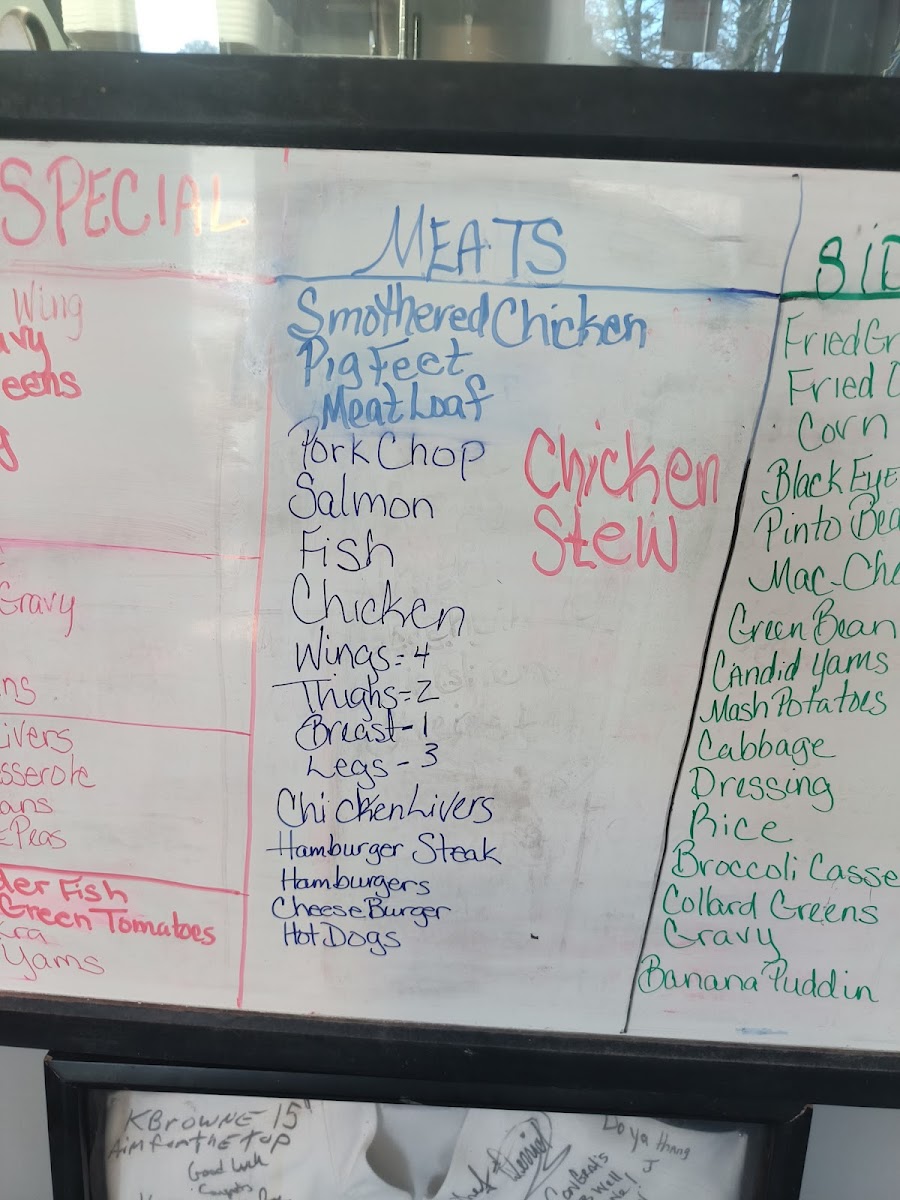 SPECIAL
Wing
eens
Gravy
ns
ivers
sserole
ans
Peas
der Fish
Green Tomatoes
Yams
MEATS
Smothered Chicken
Pig Feet
Meat Loaf
Pork Chop
Salmon
Fish
Chicken
Wings = 4
Thighs = 2
Breast - 1
Legs - 3
Chicken Livers
Hamburger Steak
Hamburgers
Cheese Burger
Hot Dogs
Chicken
Stew
SiD
Fried Gr
Fried
Corn
Black Eye
Pinto Bea
Mac-Che
Green Bean
Candid Yams
Mash Potatoes
Cabbage
Dressing
Rice
Broccoli Casse
Collard Greens
Gravy
Banana Puddin
KBROWNE 15"
Aim for the top
Good Luck